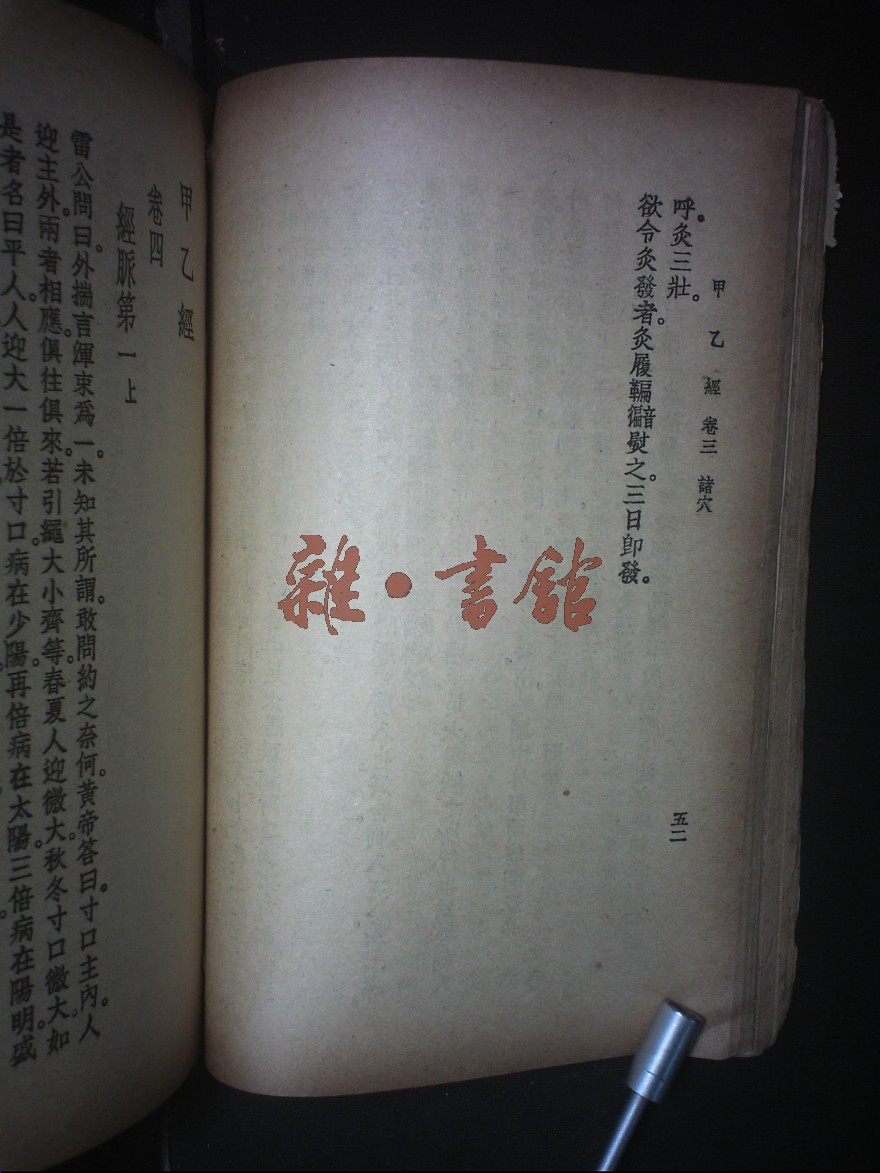 甲乙經 卷三 諸穴
呼。灸三壯。
欲令灸發者。灸履鞴𤺊熨之。三日即發。
五二
雜·書館
甲乙經
卷四
經脈第一上
雷公問曰。外揣言渾束爲一。未知其所謂。敢問約之奈何。黃帝答曰。寸口主內。人
迎主外。兩者相應。俱往俱來。若引繩大小齊等。春夏人迎微大。秋冬寸口微大。如
是者名曰平人。人迎大一倍於寸口。病在少陽。再倍病在太陽。三倍病在陽明。盛